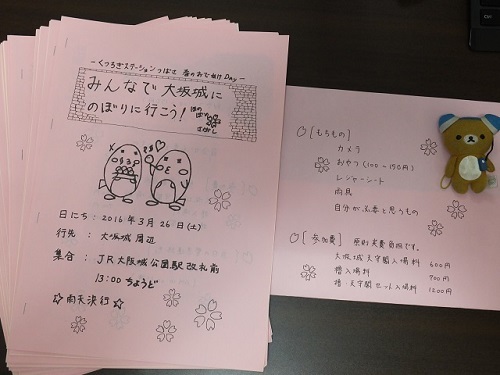 －くつろぎステーションつばさ 春のおでかけDay－
みんなで大坂城に
のぼりに行こう！
日にち：2016年3月26日(土)
行先：大坂城周辺
集合：JR大阪城公園駅改札前
13:00ちょうど
☆雨天決行☆
[もちもの]
カメラ
おやつ(100～150円)
レジャーシート
雨具
自分が必要と思うもの
[参加費] 原則実費負担です。
大坂城天守閣入場料 600円
櫓入場料 700円
櫓・天守閣セット入場料 1200円